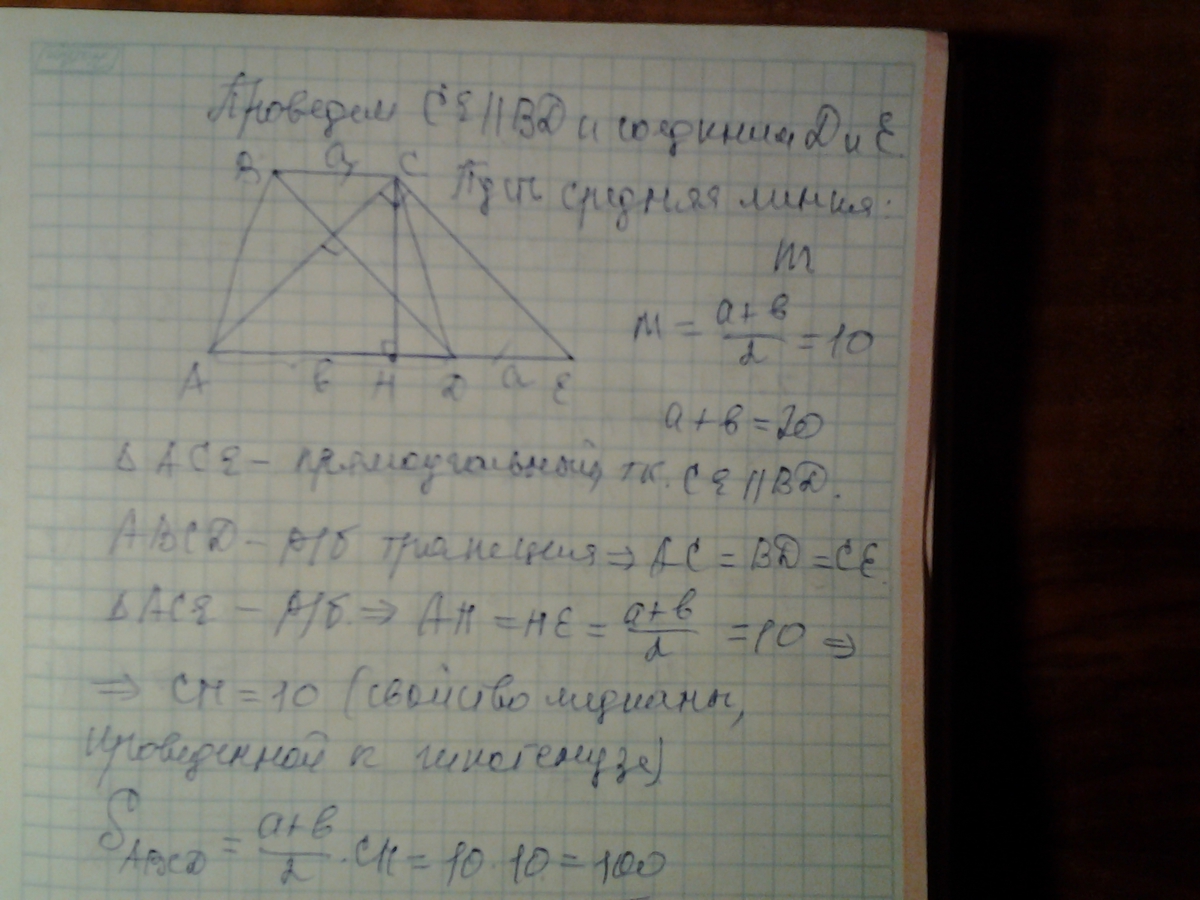 Проведем CE||BD и соединим D и E.
B a C
Пусть средняя линия:
m
m = a+в/2 = 10
A в H D a E
a+в = 20
Δ ACE – прямоугольный, т.к. CE||BD.
ABCD – р/б трапеция ⇒ AC = BD = CE.
Δ ACE – р/б ⇒ AH = HE = a+в/2 = 10 ⇒
⇒ CH = 10 (свойство медианы,
проведенной к гипотенузе)
S ABCD = a+в/2 · CH = 10 · 10 = 100